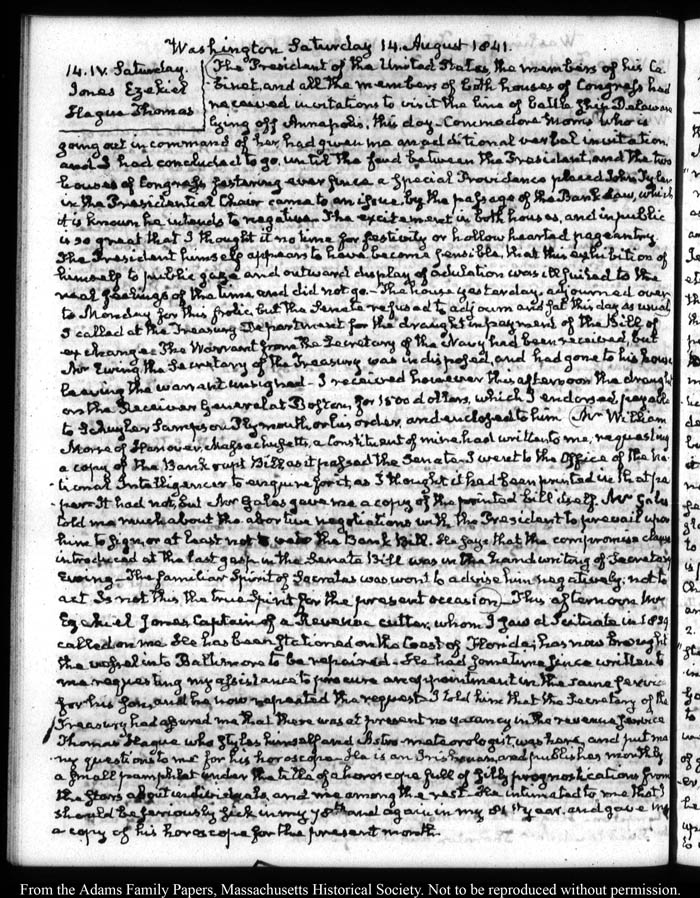 Washington Saturday 14. August 1841.
14. IV. Saturday.
Jones Ezekiel
Hague Thomas
The President of the United States, the members of his Ca-
binet, and all the members of both houses of Congress had
received invitations to visit the line of battle ship Delaware
lying off Annapolis, this day. Commodore Morris who is
going out in command of her, had given me an additional verbal invitation,
and I had concluded to go, until the feud between the President, and the two
houses of Congress festering ever since a special Providence placed John Tyler
in the Presidential Chair came to an issue, by the passage of the Bank Law, which
it is known he intends to negative. The excitement in both houses, and in public
is so great that I thought it no time for festivity or hollow hearted pageantry.
The President himself appears to have become sensible, that this exhibition of
himself to public gaze and outward display of adulation was ill suited to the
real feelings of the time and did not go. The house yesterday, adjourned over
to Monday for this frolic, but the Senate refused to adjourn and sat this day as usual
I called at the Treasury Department for the draught in payment of the Bill of
exchange. The Warrant from the Secretary of the Navy had been received, but
Mr Ewing the Secretary of the Treasury was indisposed, and had gone to his house
leaving the warrant unsigned. I received however this afternoon the draught
on the Receiver General at Boston, for 1500 dollars, which I endorsed payable
to Schuyler Sampson Plymouth, or his order, and enclosed to him. Mr William
Morse of Hanover, Massachusetts, a Constituent of mine had written to me, requesting
a copy of the Bankrupt Bill as it passed the Senate. I went to the Office of the na-
tional Intelligencer to enquire for it, as I thought it had been printed in that pa-
per. It had not, but Mr Gales gave me a copy of the printed bill itself. Mr Gales
told me much about the abortive negotiations with the President to prevail upon
him to sign, or at least not to veto the Bank Bill. He says that the compromise clause
introduced at the last gasp in the Senate Bill was in the handwriting of Secretary
Ewing. The familiar Spirit of Socrates was wont to advise him negatively; not to
act. Is not this the true Spirit for the present occasion. This afternoon Mr
Ezekiel Jones Captain of a Revenue cutter, whom I saw at Scituate in 1839
called on me. He has been stationed on the Coast of Florida; has now brought
the vessel into Baltimore to be repaired. He had sometime since written to
me requesting my assistance to procure an appointment in the same service
for his son, and he now repeated the request. I told him that the Secretary of the
Treasury had assured me that there was at present no vacancy in the revenue service
Thomas Hague who styles himself and Astro-meteorologist, was here, and put ma-
ny questions to me for his horoscope. He is an Irishman, and publishes monthly
a small pamphlet under the title of a horoscope full of silly prognostications from
the Stars about individuals, and me among the rest. He intimated to me that I
should be seriously sick in my 78th and again in my 81st year, and gave me
a copy of his horoscope for the present month.
From the Adams Family Papers, Massachusetts Historical Society. Not to be reproduced without permission.